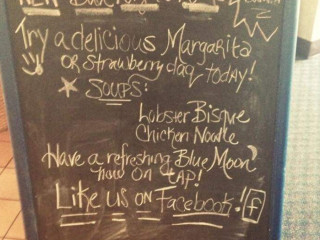 NEW
Try a delicious Margarita
or Strawberry daq today!
Soups:
Lobster Bisque
Chicken Noodle
Have a refreshing Blue Moon
now on tap!
Like us on Facebook! f